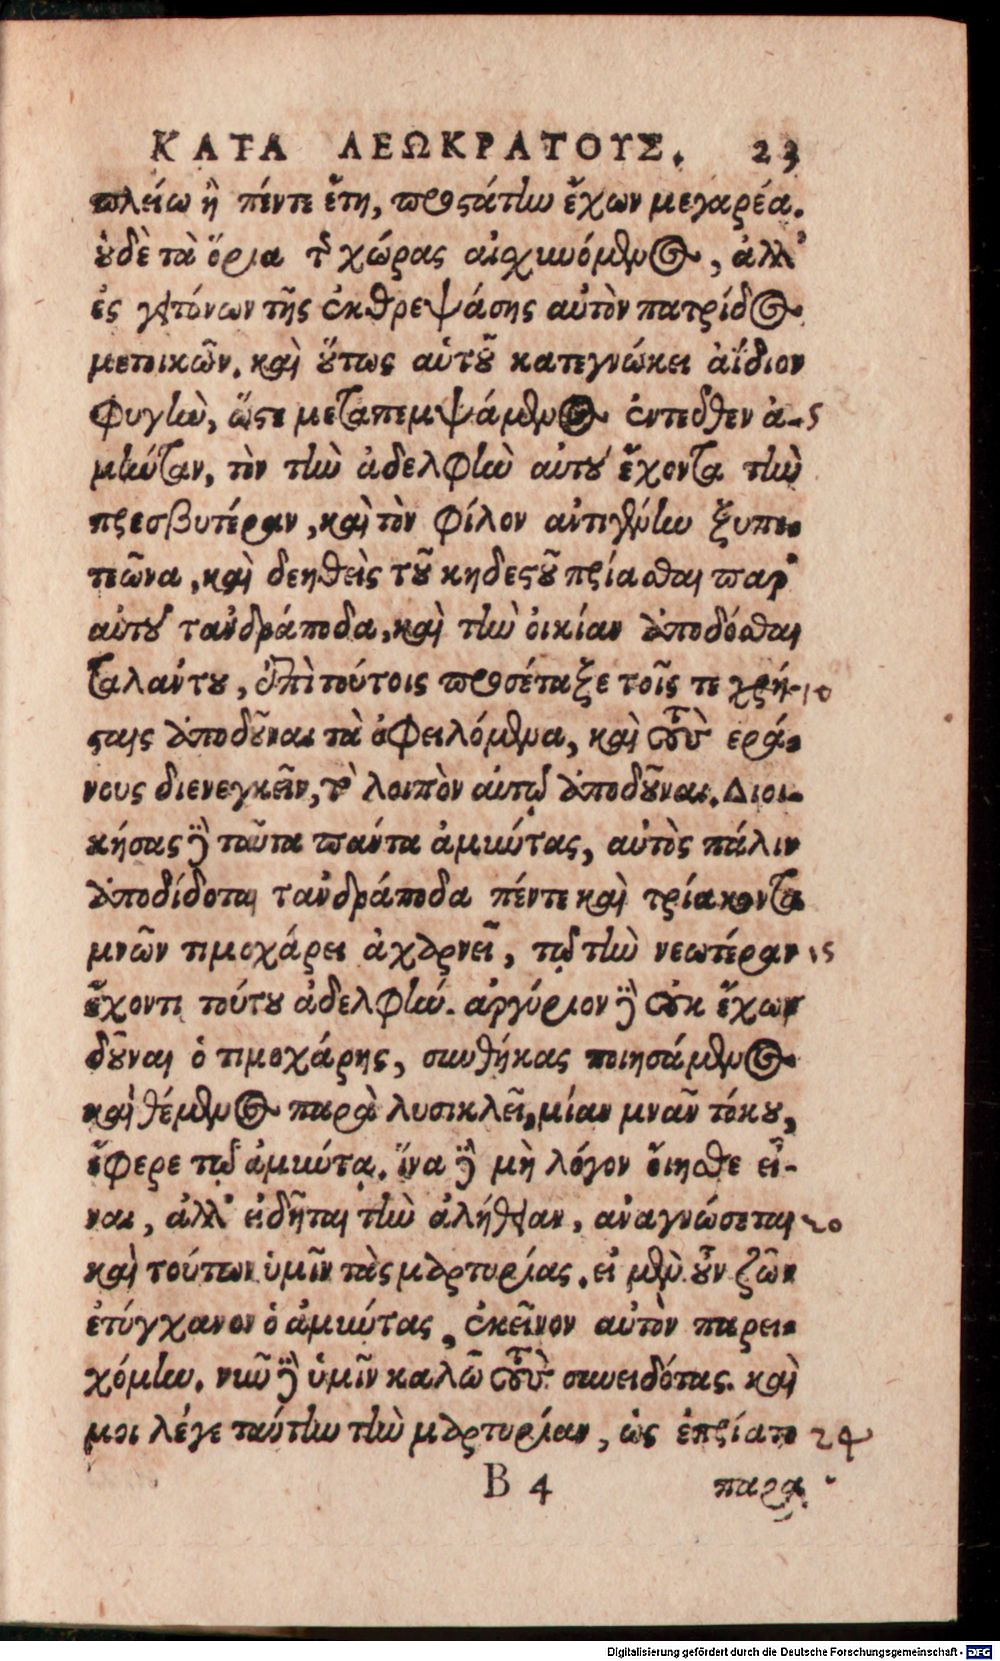 ΚΑΤΑ ΛΕΩΚΡΑΤΟΥΣ. 23
πλείω ἢ πέντε ἔτη, προστάτην ἔχων μεγαρέα.
οὐδὲ τὰ ὅρια τῆς χώρας αἰσχυνόμενος, ἀλλ'
ἐς γειτόνων τῆς ἐκθρεψάσης αὐτὸν πατρίδος
μετοικῶν. καὶ οὕτως αὑτοῦ κατεγνώκει ἀΐδιον
φυγὴν, ὥστε μεταπεμψάμενος ἐντεῦθεν ἀ- 5
μύνταν, τὸν τὴν ἀδελφὴν αὐτοῦ ἔχοντα τὴν
πρεσβυτέραν, καὶ τὸν φίλον ἀντιγένην ξυπε-
τεῶνα, καὶ δεηθεὶς τοῦ κηδεστοῦ πρίασθαι παρ'
αὐτοῦ τἀνδράποδα, καὶ τὴν οἰκίαν ἀποδόσθαι
ταλάντου, ἐπὶ τούτοις προσέταξε τοῖς τε χρή- 10
σταις ἀποδοῦναι τὰ ὀφειλόμενα, καὶ τοὺς ἐρά-
νους διενεγκεῖν, τὸ λοιπὸν αὐτῷ ἀποδοῦναι. Διοι-
κήσας δὲ ταῦτα πάντα ἀμύντας, αὐτὸς πάλιν
ἀποδίδοται τἀνδράποδα πέντε καὶ τριάκοντα
μνῶν τιμοχάρει ἀχαρνεῖ, τῷ τὴν νεωτέραν 15
ἔχοντι τούτου ἀδελφήν. ἀργύριον δὲ οὐκ ἔχων
δοῦναι ὁ τιμοχάρης, συνθήκας ποιησάμενος
καὶ θέμενος παρὰ λυσικλεῖ, μίαν μνᾶν τόκου,
ἔφερε τῷ ἀμύντᾳ. ἵνα δὲ μὴ λόγον οἴησθε εἶ-
ναι, ἀλλ' εἰδῆται τὴν ἀλήθειαν, ἀναγνώσεται 20
καὶ τούτων ὑμῖν τὰς μαρτυρίας. εἰ μὲν οὖν ζῶν
ἐτύγχανον ὁ ἀμύντας, ἐκεῖνον αὐτὸν παρει-
χόμην. νῦν δὲ ὑμῖν καλῶ τοὺς συνειδότας. καὶ
μοι λέγε ταύτην τὴν μαρτυρίαν, ὡς ἐπρίατο 24
B 4 παρα
Digitalisierung gefördert durch die Deutsche Forschungsgemeinschaft - DFG